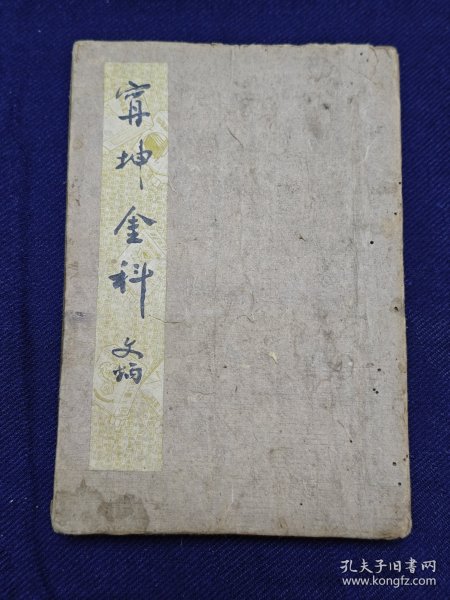 寗坤金科
文炳
孔夫子旧书网
www.kongfz.com